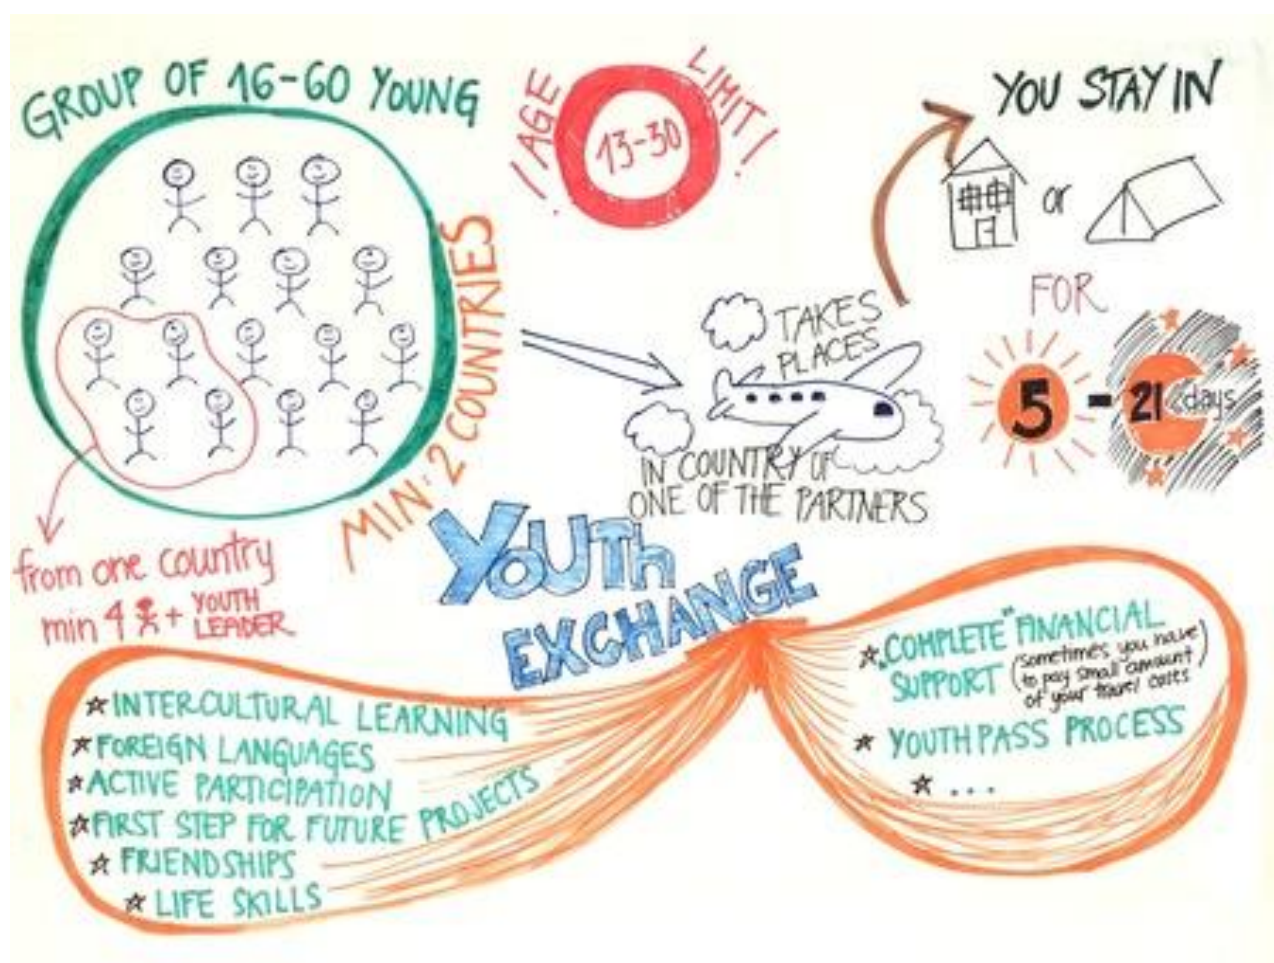 GROUP OF 16-60 YOUNG
! AGE LIMIT !
13-30
YOU STAY IN
or
FOR
5 - 21 days
MIN: 2 COUNTRIES
TAKES
PLACES
IN COUNTRY OF
ONE OF THE PARTNERS
from one country
min 4 + YOUTH
LEADER
YOUTH
EXCHANGE
INTERCULTURAL LEARNING
FOREIGN LANGUAGES
ACTIVE PARTICIPATION
FIRST STEP FOR FUTURE PROJECTS
FRIENDSHIPS
LIFE SKILLS
„COMPLETE" FINANCIAL
SUPPORT (sometimes you have
to pay small amount
of your travel costs)
YOUTHPASS PROCESS
...